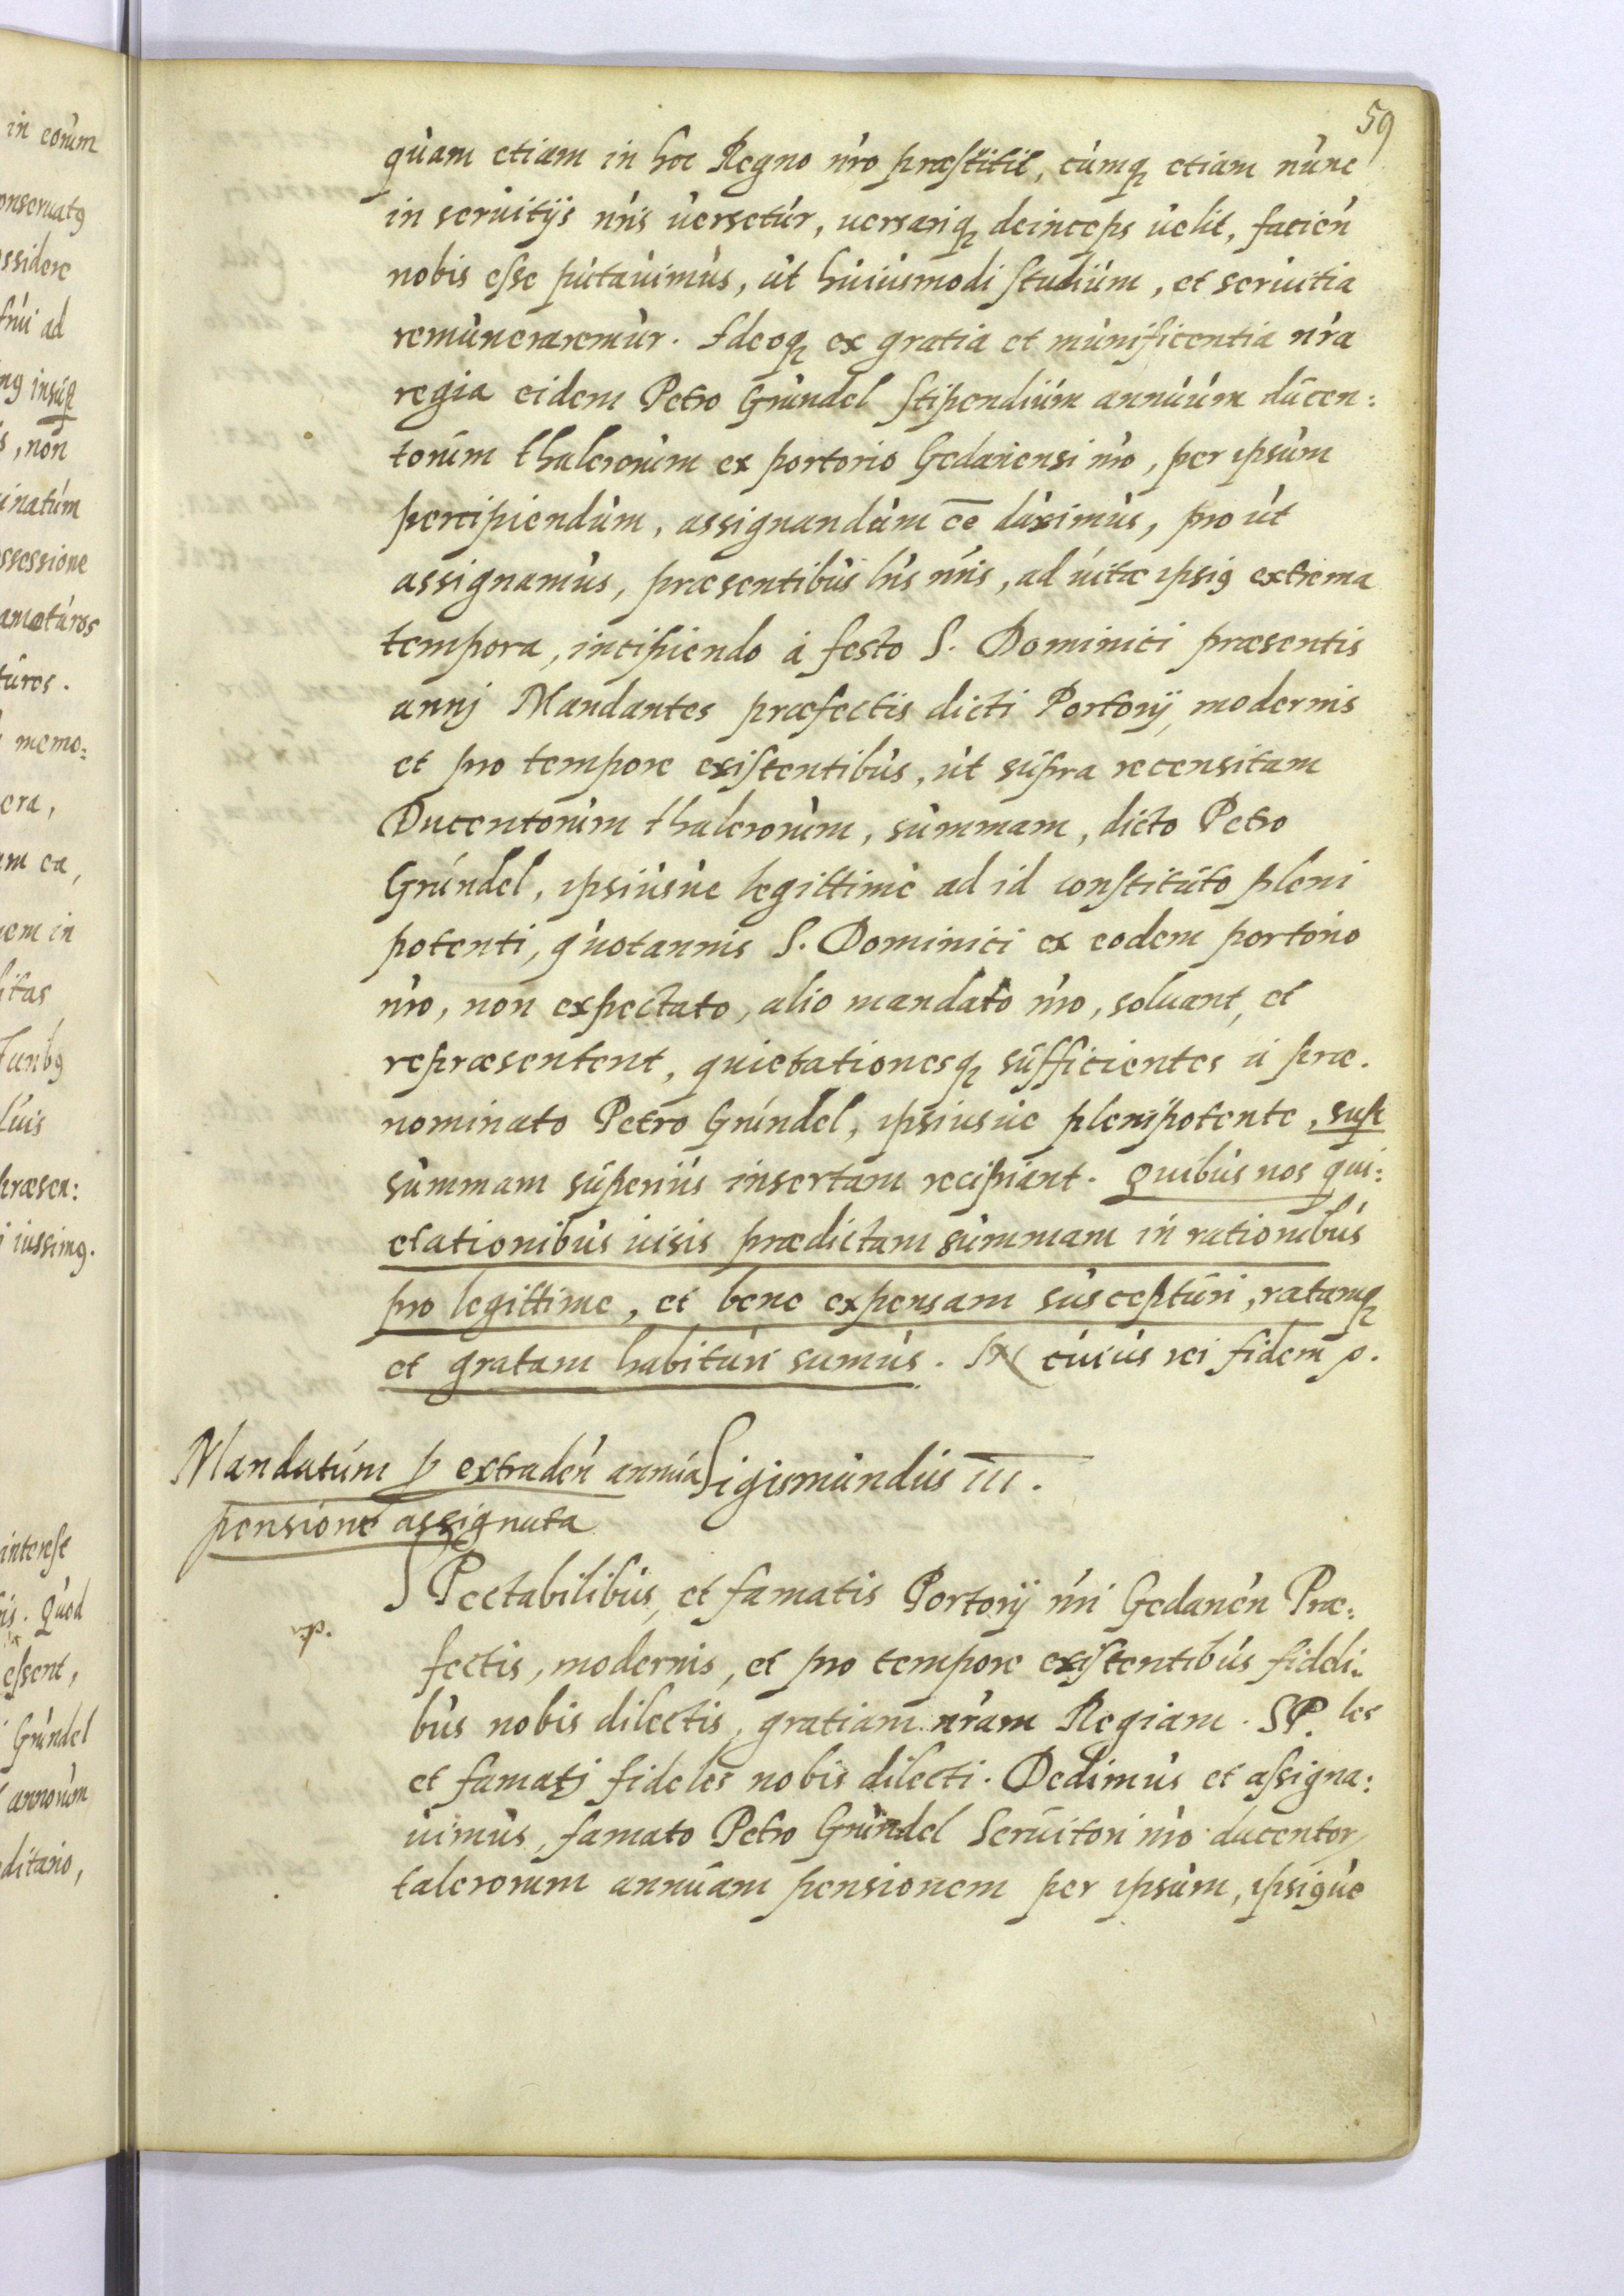 59
quam etiam in hoc Regno nro præstitit, cumq etiam nunc
in seruitijs nris uersetur, uersariq deinceps uelit, facien
nobis esse putauimus, ut huiusmodi studium, et seruitia
remuneraremur. Ideoq ex gratia et munificentia nra
regia eidem Petro Gründel stipendium annuum ducen:
torum thalerorum ex portorio Gedanensi nro, per ipsum
percipiendum, assignandum ee duximus, pro ut
assignamus, præsentibus lris nris, ad uitæ ipsig extrema
tempora, incipiendo a festo S. Dominici præsentis
annj Mandantes præfectis dicti Portorij modernis
et pro tempore existentibus, ut supra recensitam
Ducentorum thalerorum, summam, dicto Petro
Gründel, ipsiusue legittime ad id constituto pleni
potenti, quotannis S. Dominici ex eodem portorio
nro, non expectato, alio mandato nro, soluant, et
repræsentent, quietationesq sufficientes a præ.
nominato Petro Gründel, ipsiusue plenipotente, sup
summam superius insertam recipiant. Quibus nos qui:
etationibus uisis prædictam summam in rationibus
pro legittime, et bene expensam suscepturi, ratamq
et gratam habituri sumus. In cuius rei fidem p.
Mandatum p extraden annua
pensione assignata
Sigismundus III.
SPectabilibus, et famatis Portorij nri Gedanen Præ:
fectis, modernis, et pro tempore existentibus fideli:
bus nobis dilectis, gratiam nram Regiam. SP. les
et famatj fideles nobis dilecti. Dedimus et assigna:
uimus, famato Petro Gründel Seruitori nro ducentor
talerorum annuam pensionem per ipsum, ipsigue
in eorum
onseruatg
ssidere
frui ad
, non
inatum
ssessione
turos.
memo:
era,
m ea,
em in
præsen:
i iussimg.
Quod
essent,
Gründel
annorum
ditario,